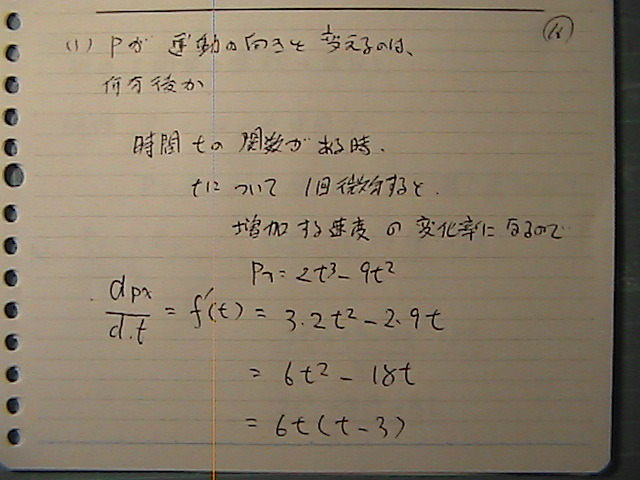 (1) Pが 運動の向きを 変えるのは、
何分後か
時間 tの 関数が ある時.
tについて 1回微分すると.
増加する速度 の 変化率になるので
Px = 2t³ - 9t²
dpx/d.t = f'(t) = 3.2t² - 2.9t
= 6t² - 18t
= 6t(t-3)